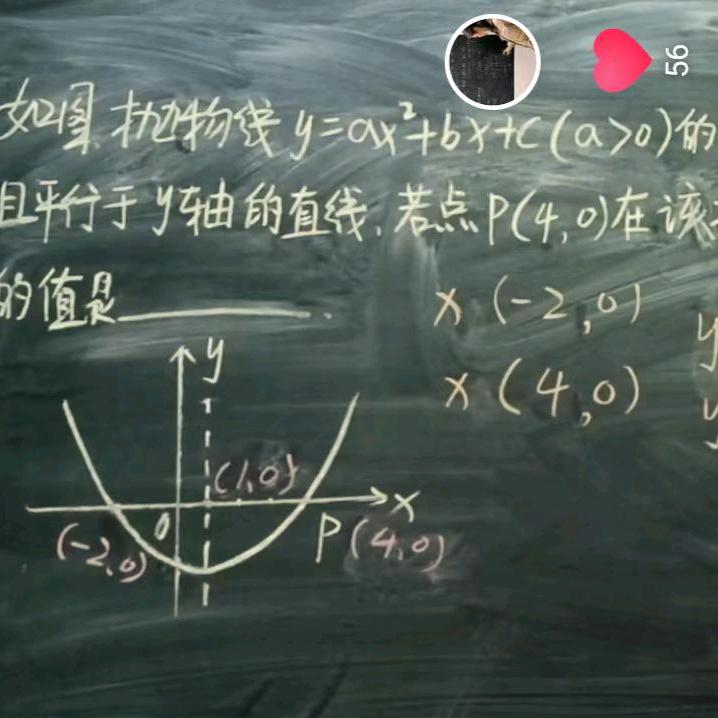 56
如图,抛物线 y=ax²+bx+c(a>0)的
且平行于y轴的直线,若点P(4,0)在该
的值是________.
x (-2,0)
y
x (4,0)
y
y
(1,0)
x
0
(-2,0)
P(4,0)